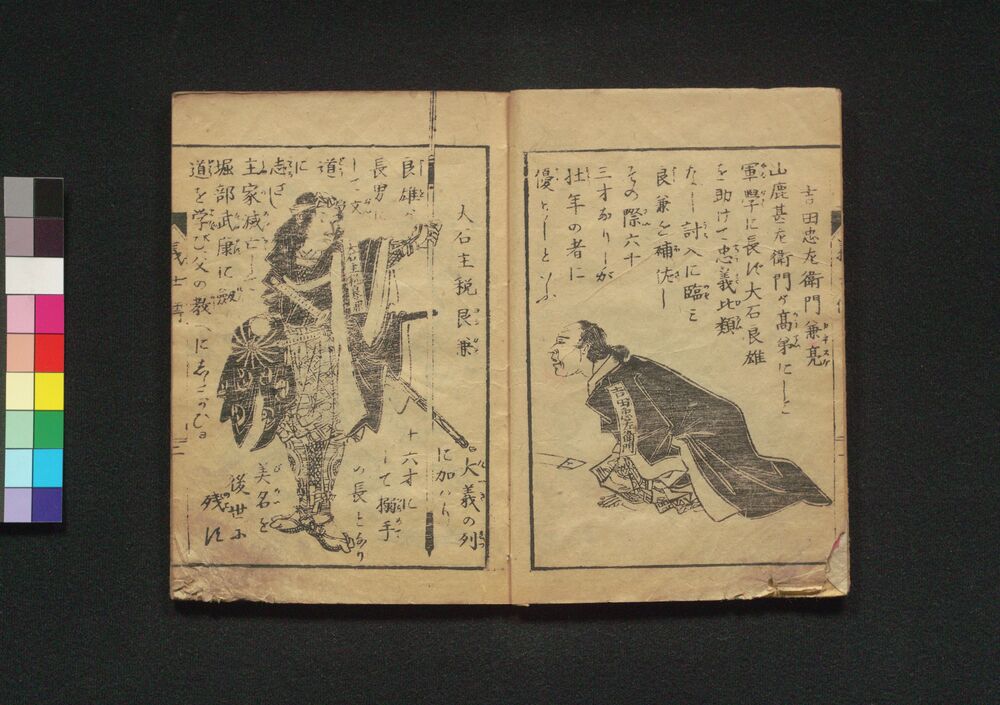 吉田忠左衛門兼亮
山鹿甚左衛門が高弟にして
軍学に長じ大石良雄
を助けて忠義比類
なし討入に臨み
良兼を補佐し
その際六十
三才なりしが
壮年の者に
優りしといふ
吉田忠左衛門
大石主税良兼
良雄が
長男に
して文
道に
志ざし
主家滅亡
堀部武庸に
道を学び父の教へにしたがひ
大義の列
に加はり
十六才に
して搦手
の長となり
美名を
後世に
残す
義士